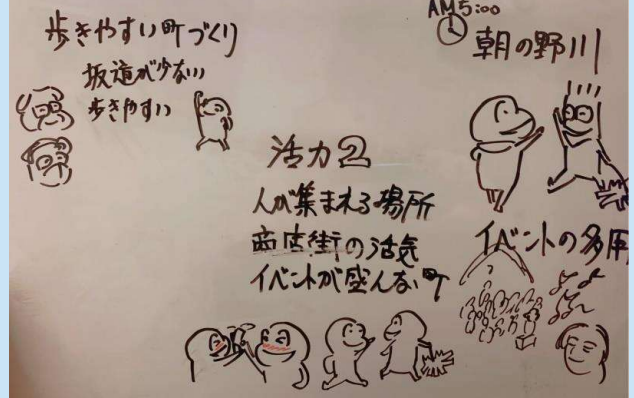 歩きやすい町づくり
坂道が少ない
歩きやすい
AM5:00
朝の野川
活力2
人が集まれる場所
商店街の活気
イベントが盛んな町
イベントの多